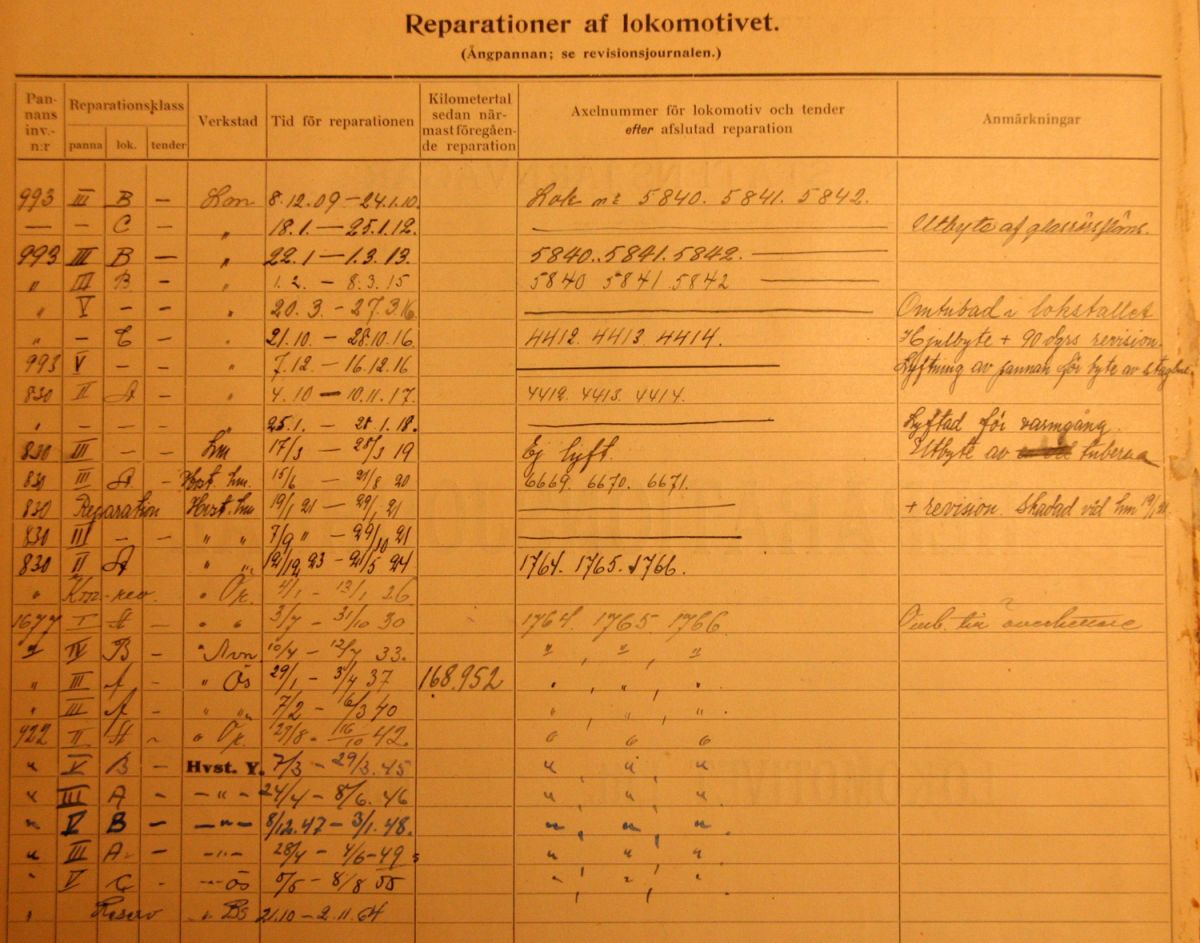 Reparationer af lokomotivet.
(Ångpannan; se revisionsjournalen.)
Pannans inv.-n:r | Reparationsklass panna lok. tender | Verkstad | Tid för reparationen | Kilometertal sedan närmast föregående reparation | Axelnummer för lokomotiv och tender efter afslutad reparation | Anmärkningar
993 III B — 8.12.09 — 24.1.10. Lok nr 5840. 5841. 5842.
— — C — „ 18.1. — 25.1.12. Utbyte af
993 III B — „ 22.1 — 1.3.13. 5840. 5841. 5842.
„ III B — „ 1.2. — 8.3.15 5840 5841 5842
„ V — — „ 20.3. — 27.3.16 Omtubad i lokstallet
„ — C — „ 21.10 — 28.10.16. 4412. 4413. 4414. Hjulbyte + 90 dgrs revision.
993 V — — „ 7.12. — 16.12.16 Lyftning av pannan för byte av
830 II A — „ 4.10 — 10.11.17. 4412. 4413. 4414.
„ — — — „ 25.1. — 28.1.18. Lyftad för varmgång.
830 III — — Lm 17/3 — 28/3 19 Ej lyft. Utbyte av tuberna
830 III A — Hvst. Lm. 15/6 — 21/8 20 6669. 6670. 6671.
830 Reparation Hvst. Lm 19/1 21 — 29/1 21 + revision. Skadad vid Lm 19/1 21
830 III — — „ „ 7/9 „ — 29/10 21
830 II A „ „ 12/12 23 — 21/5 24 1764. 1765. 1766.
„ Kon-rev. „ Ör. 4/1 — 13/1 26
1677 I A — „ „ 3/7 — 31/10 30 1764. 1765 1766
„ IV B — „ 10/4 — 12/7 33. „ , „ , „
„ III A — „ Ös 29/1 — 3/4 37 168.952 „ , „ , „
„ III A — „ „ 7/2 — 6/3 40 „ , „ , „
922 II A — „ Ör. 27/8 — 16/10 42. „ „ „
„ V B — Hvst. Y. 7/3 — 29/3.45 „ , „ , „
„ III A — — „ — 24/4 — 8/6.46 „ , „ , „
„ V B — — „ — 8/12.47 — 3/1.48. „ , „ , „ .
„ III A — — „ — 28/4 — 4/6-49 „ , „ , „ .
„ V C — — Ös 5/5 — 8/8 55 „ , „ , „ .
„ Reserv „ Bs 21.10 — 2.11.64